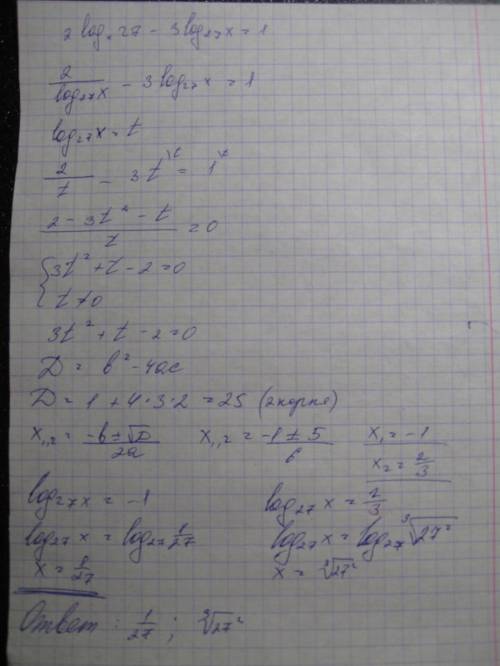 2 logₓ 27 - 3 log₂₇ x = 1
2/log₂₇x - 3 log₂₇ x = 1
log₂₇ x = t
2/t - 3t^{\t} = 1^{\t}
(2 - 3t² - t)/t = 0
{ 3t² + t - 2 = 0
t ≠ 0
3t² + t - 2 = 0
D = b² - 4ac
D = 1 + 4·3·2 = 25 (2 корня)
x₁,₂ = (-b ± √D)/2a x₁,₂ = (-1 ± 5)/6 x₁ = -1
x₂ = 2/3
log₂₇ x = -1 log₂₇ x = 2/3
log₂₇ x = log₂₇ 1/27 log₂₇ x = log₂₇ ∛27²
x = 1/27 x = ∛27²
Ответ: 1/27 ; ∛27²